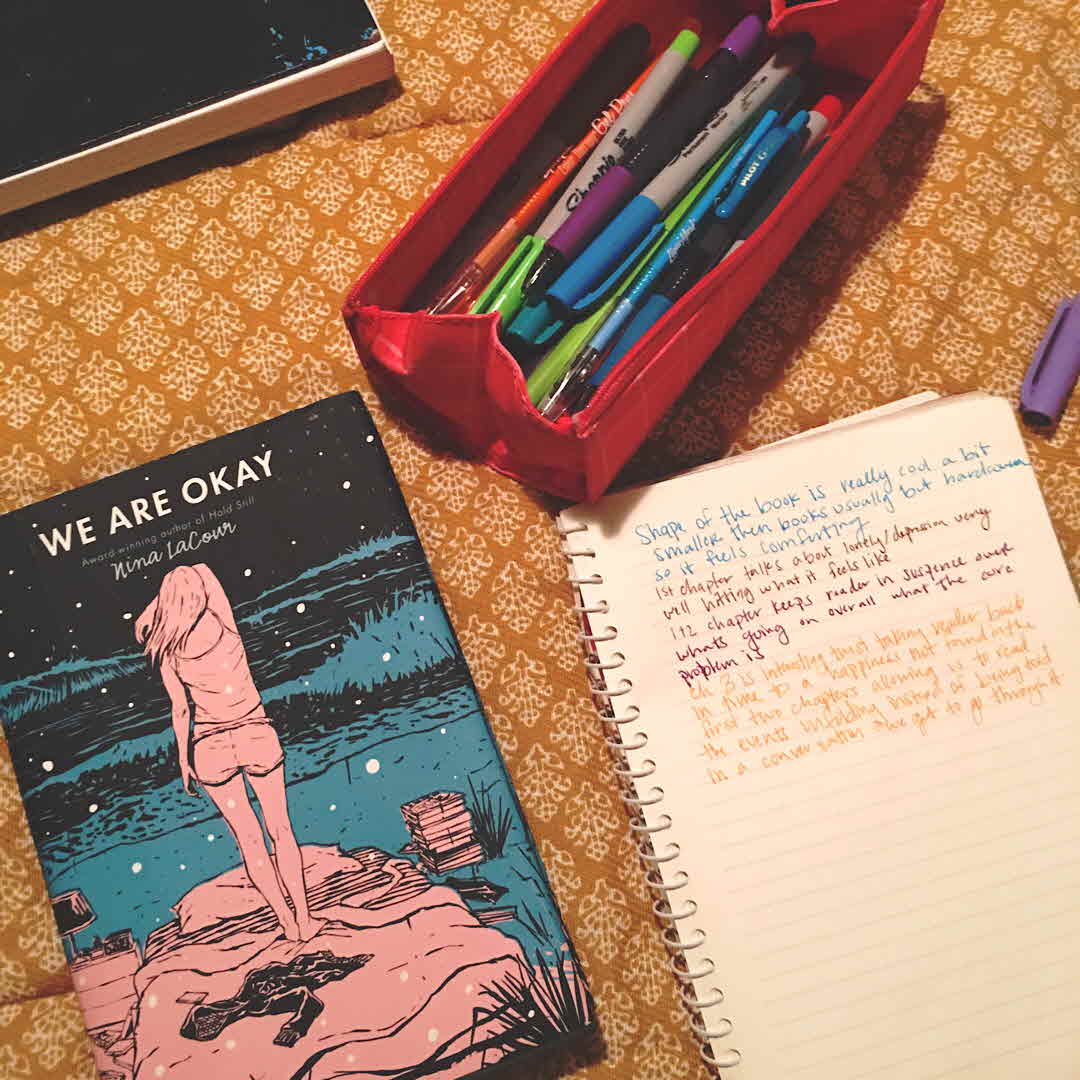 Gel
Sharpie
Permanent Marker
PILOT G
WE ARE OKAY
Award-winning author of Hold Still
Nina LaCour
Shape of the book is really cool, a bit
smaller then books usually but hardcover
so it feels comforting
1st chapter talks about lonely/depression very
well hitting what it feels like
1+2 chapter keeps reader in suspence over
whats going on overall what the core
problem is
Ch. 3 is intresting twist taking reader back
in time to a happiness not found in the
first two chapters allowing is to read
the events unfolding instead of being told
in a conversation we get to go through it